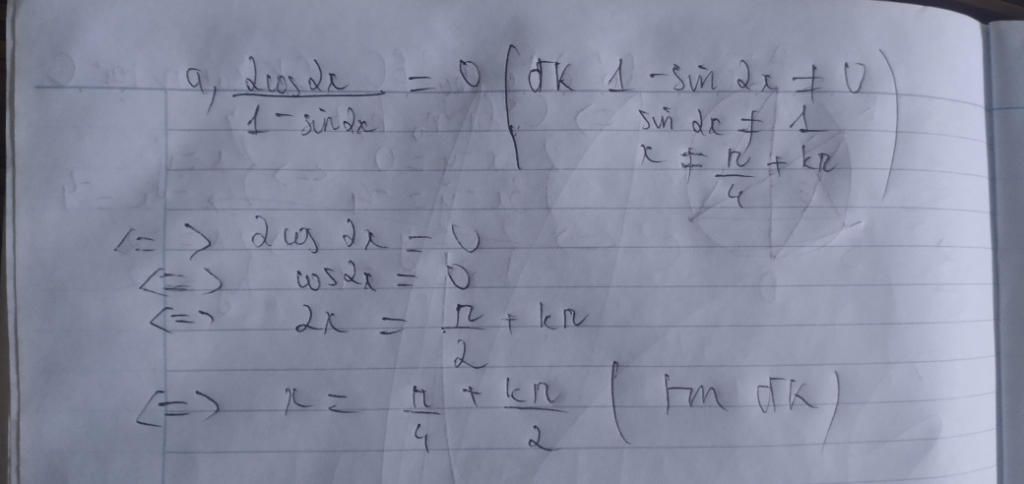 a, 2cos2x / 1 - sin2x = 0 (đk 1 - sin 2x ≠ 0
sin 2x ≠ 1
x ≠ π/4 + kπ)
<=> 2 cos 2x = 0
<=> cos2x = 0
<=> 2x = π/2 + kπ
<=> x = π/4 + kπ/2 (tm đk)